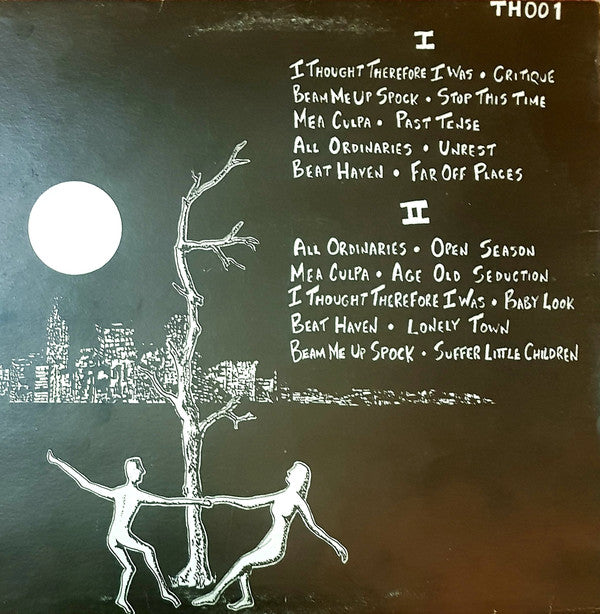 TH001
I
I THOUGHT THEREFORE I WAS • CRITIQUE
BEAM ME UP SPOCK • STOP THIS TIME
MEA CULPA • PAST TENSE
ALL ORDINARIES • UNREST
BEAT HAVEN • FAR OFF PLACES
II
ALL ORDINARIES • OPEN SEASON
MEA CULPA • AGE OLD SEDUCTION
I THOUGHT THEREFORE I WAS • BABY LOOK
BEAT HAVEN • LONELY TOWN
BEAM ME UP SPOCK • SUFFER LITTLE CHILDREN